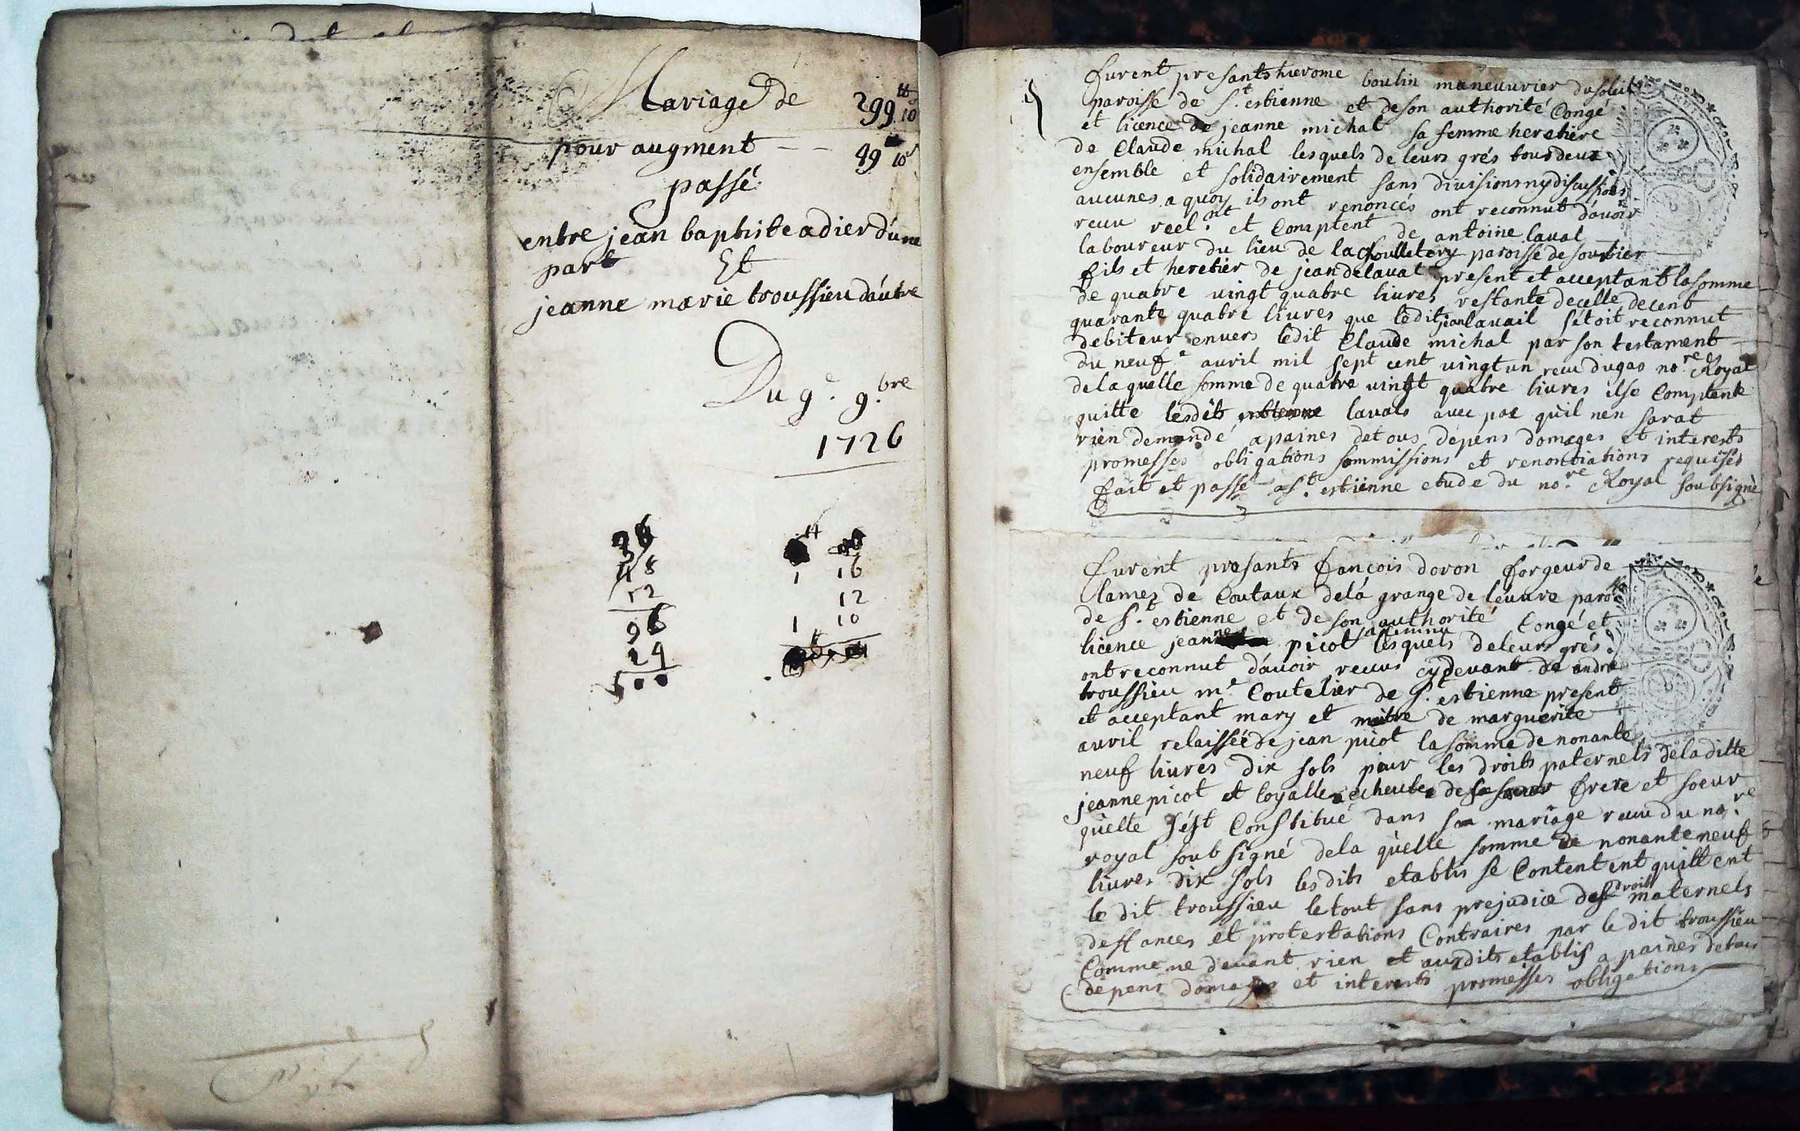 Mariage de 299 10
pour augment 49 10
passé
entre jean baptiste adier d'une
part Et
jeanne marie troussieu dautre
Du 9e. 9.bre
1726
48
12
96
24
1 16
12
1 10
furent presants hierome boulin maneuvrier du
paroisse de St. estienne et de son authorité Congé
et licence de jeanne michal sa femme heretiere
de Claude michal lesquels de leurs grés tous deux
ensemble et solidairement sans divisions ny discussions
aucunes a quoy ils ont renoncés ont reconnut d'avoir
receu reel.nt et Comptent de antoine laval
laboureur du lieu de la paroisse de sorbier
fils et heretier de jean delaval present et acceptant la somme
de quatre vingt quatre livres restante de celle de cent
quarante quatre livres que ledit jean lavail sétoit reconnut
debiteur envers ledit Claude michal par son testament
du neufe avril mil sept cent vingt un receu dugas no.re Royal
de laquelle somme de quatre vingt quatre livres il se Comptent
quitte lesdits lavals avec pac quil nen sarat
rien demandé a paines de tous depens domages et interests
promesses obligations sommissions et renontiations requises
fait et passé a St. estienne etude du no.re Royal soubsigné
furent presants françois doron forgeur de
lames de Coutaux de la grange de leuvre paroi
de St. estienne et de son authorité Congé et
licence jeanne picot sa femme lesquels de leurs grés
ont reconnut d'avoir receus cy devant de andré
troussieu me. Coutelier de St. estienne present
et acceptant mary et maitre de marguerite
avril relaissée de jean picot la somme de nonante
neuf livres dix sols pour les droits paternels de la ditte
jeanne picot et loyalle echeute de frere et soeur
qu'elle s'est Constitué dans son mariage receu du no.re
royal soubsigné de la quelle somme de nonante neuf
livres dix sols lesdits etablis se Contentent quittent
le dit troussieu le tout sans prejudice des droits maternels
deffances et protestations Contraires par le dit troussieu
Comme ne devant rien et ausdits etablis a paines de tous
depens domages et interests promesses obligations